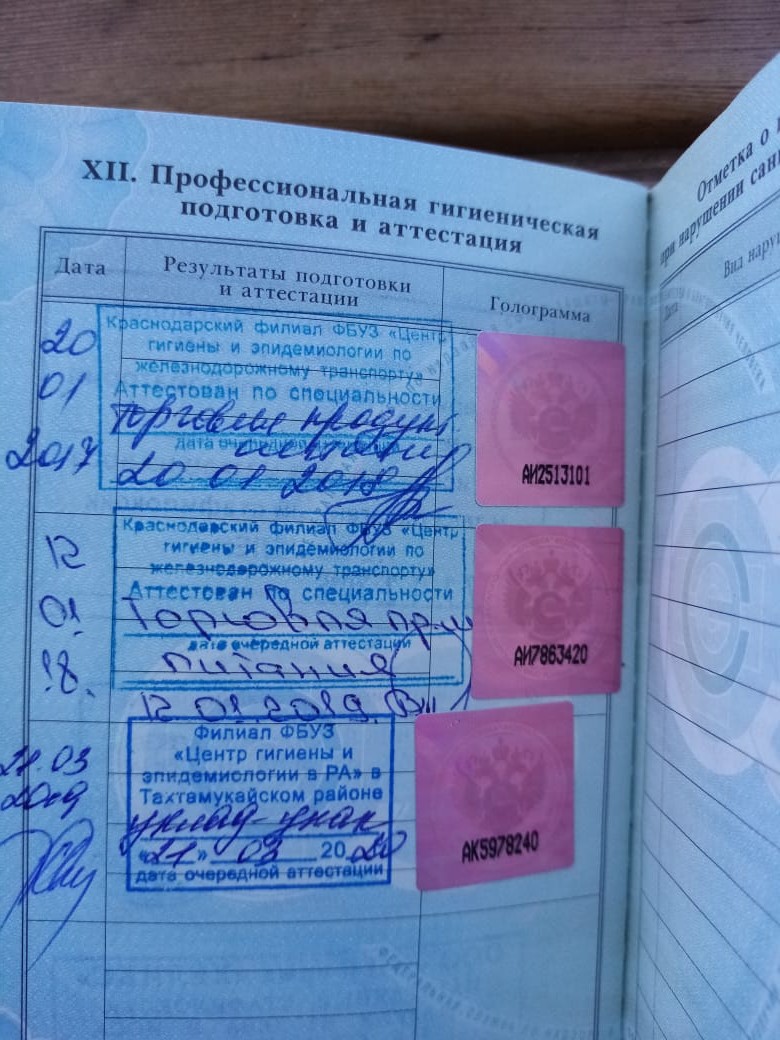 XII. Профессиональная гигиеническая
подготовка и аттестация
Дата
Результаты подготовки
и аттестации
Голограмма
20
01
2017
Краснодарский филиал ФБУЗ «Центр
гигиены и эпидемиологии по
железнодорожному транспорту»
Аттестован по специальности
торговля
дата очередной аттестации
20 01 2018
АИ2513101
12
01.
18.
Краснодарский филиал ФБУЗ «Центр
гигиены и эпидемиологии по
железнодорожному транспорту»
Аттестован по специальности
торговля
дата очередной аттестации
питания
12.01.2019.
АИ7863420
21.03
2019
Филиал ФБУЗ
«Центр гигиены и
эпидемиологии в РА» в
Тахтамукайском районе
«21» 03 2020
дата очередной аттестации
АК5978240
Отметка о
при нарушении
Вид
Дата